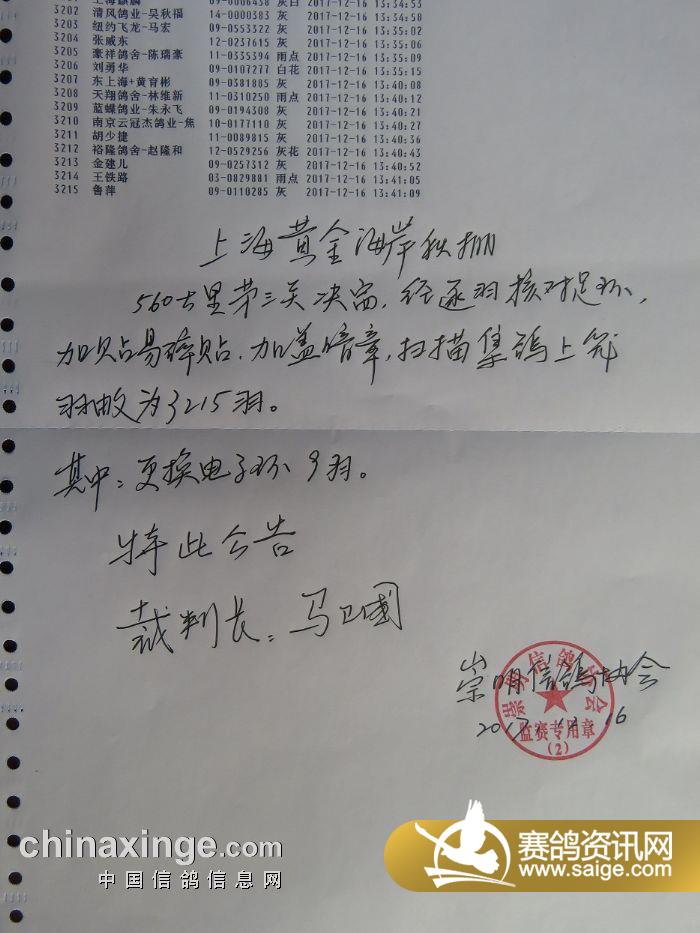 3202 清风鸽业-吴秋福 14-0000383 灰 2017-12-16 13:34:58
3203 纽约飞龙-马宏 09-0553322 灰 2017-12-16 13:35:02
3204 张威东 12-0237615 灰 2017-12-16 13:35:06
3205 豪祥鸽舍-陈瑞豪 11-0335394 雨点 2017-12-16 13:35:09
3206 刘勇华 09-0107277 白花 2017-12-16 13:35:15
3207 东上海+黄育彬 09-0381885 灰 2017-12-16 13:40:08
3208 天翔鸽舍-林维新 11-0310250 雨点 2017-12-16 13:40:12
3209 蓝蝶鸽业-朱永飞 09-0194308 灰 2017-12-16 13:40:21
3210 南京云冠杰鸽业-焦 10-0177110 灰 2017-12-16 13:40:27
3211 胡少捷 11-0089815 灰 2017-12-16 13:40:36
3212 裕隆鸽舍-赵隆和 12-0529256 灰花 2017-12-16 13:40:43
3213 金建儿 09-0257312 灰 2017-12-16 13:40:52
3214 王铁路 03-0829881 雨点 2017-12-16 13:41:05
3215 鲁萍 09-0110285 灰 2017-12-16 13:41:09
上海黄金海岸秋棚
560公里第三关决赛，经逐羽核对足环，
加贴易碎贴，加盖暗章，扫描集鸽上笼
羽数为3215羽。
其中：更换电子环9羽。
特此公告
裁判长：马卫国
崇明信鸽协会
崇明信鸽协会
监赛专用章
(2)
chinaxinge.com
中国信鸽信息网
赛鸽资讯网
www.saige.com